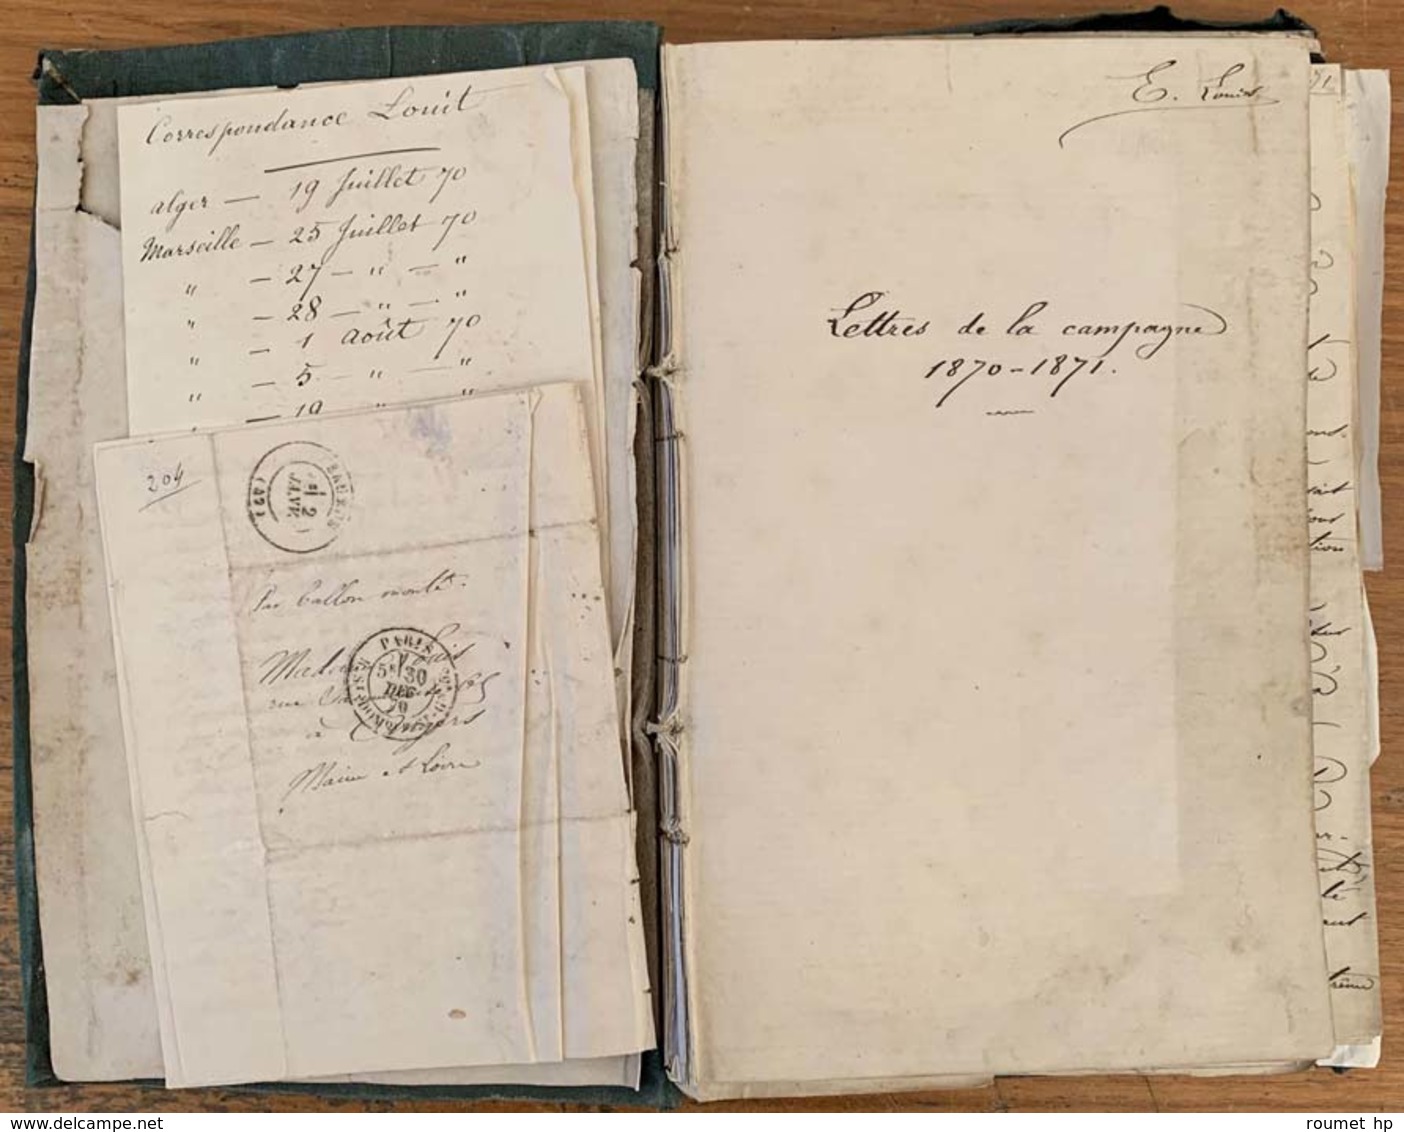 Correspondance Louit
alger — 19 Juillet 70
Marseille — 25 Juillet 70
" — 27 — " — "
" — 28 — " — "
" — 1 août 70
" — 5 — " — "
" — 19 " "
204
BAUGÉ
2
JANV.
(47)
Par ballon monté.
Madame
rue
à Angers
Maine et Loire
PARIS
5E
30
DEC
70
E. Louit
Lettres de la campagne
1870-1871.
71
tion
ent
roumet hp